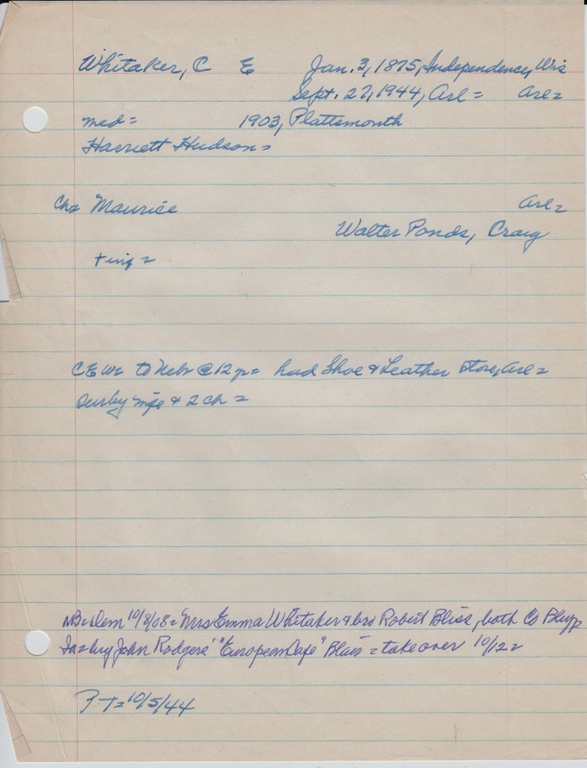 Whitaker, C E Jan. 3, 1875, Independency, Wis
Sept. 27, 1944, Arl= Arl=
med= 1903, Plattsmouth
Harriett Hudson=
Ch= Maurice Arl=
Walter Ponds, Craig
+ inf=
C E W= to Nebr @ 12 yr= had Shoe & Leather Store, Arl=
Surby wife & 2 ch=
Dem 10/8/08= "Mrs Emma Whitaker & bro Robert Bliss, both Co Bluff
Ia= buy John Rodgers' "European Cafe" Blair= take over 10/12=
P-T= 10/5/44